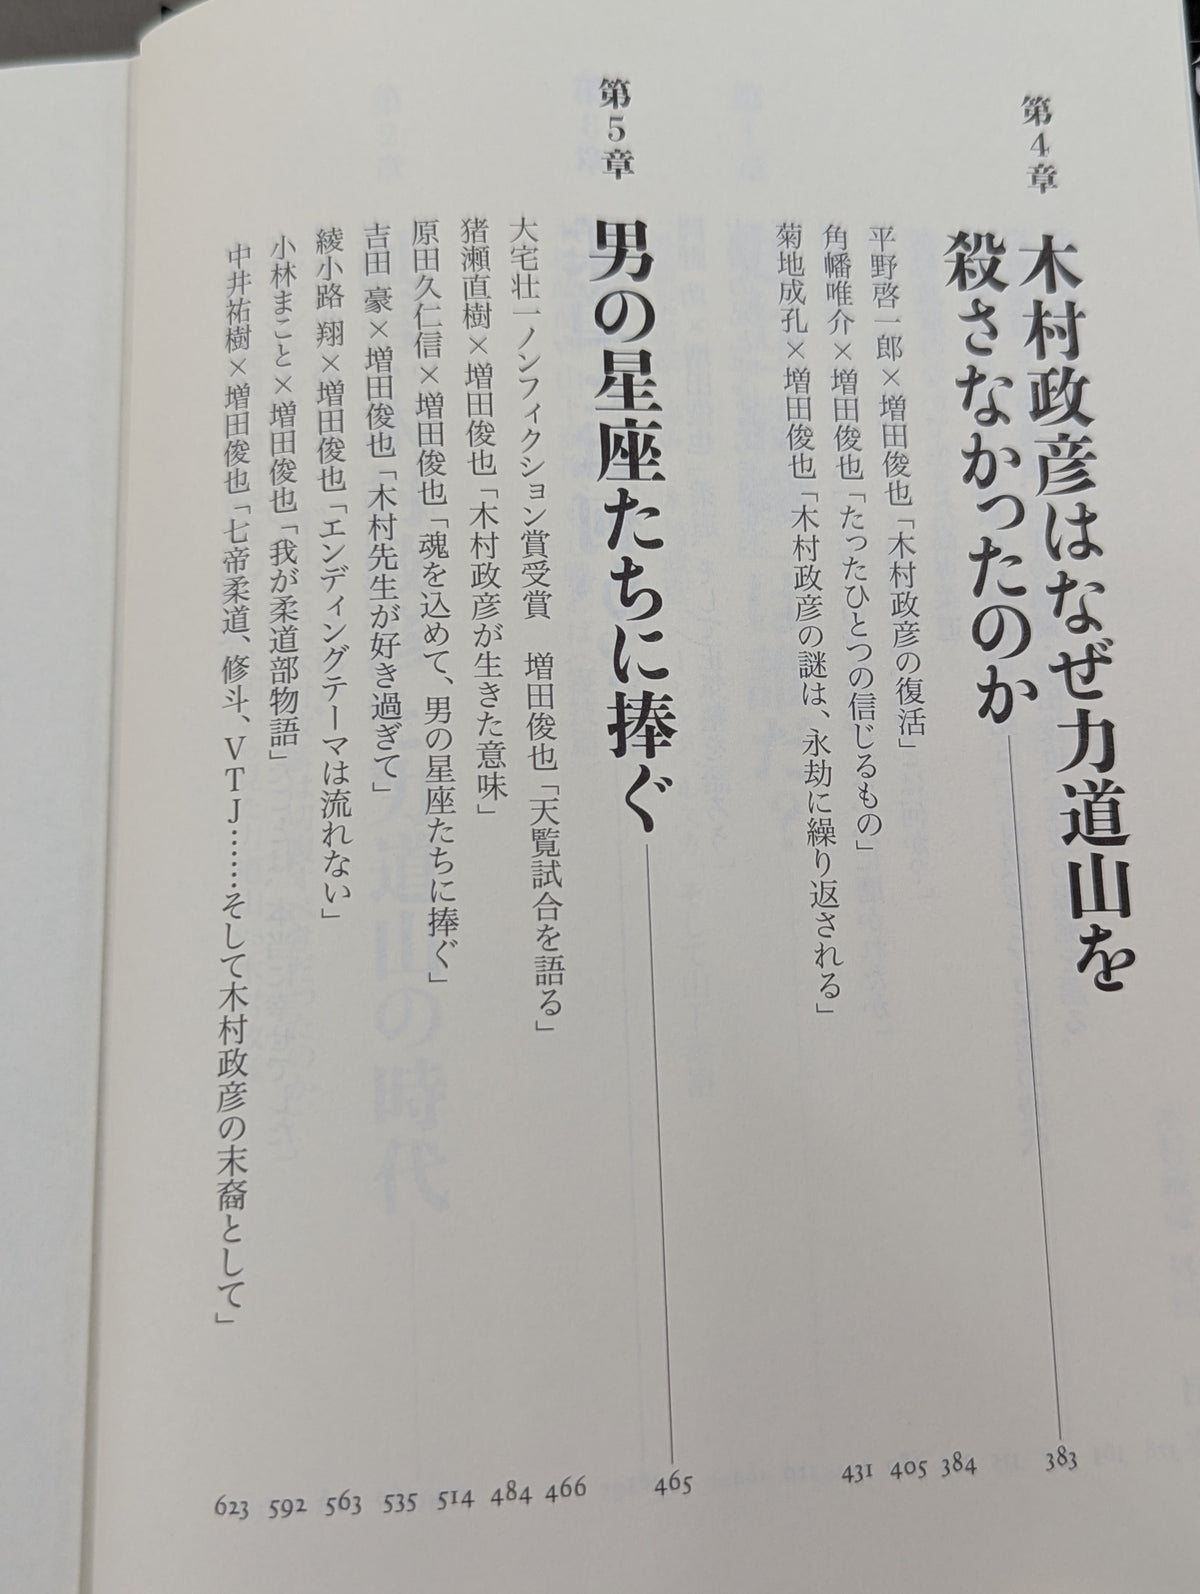 第4章
木村政彦はなぜ力道山を
殺さなかったのか 383
平野啓一郎×増田俊也「木村政彦の復活」 384
角幡唯介×増田俊也「たったひとつの信じるもの」 405
菊地成孔×増田俊也「木村政彦の謎は、永劫に繰り返される」 431
第5章
男の星座たちに捧ぐ 465
大宅壮一ノンフィクション賞受賞 増田俊也「天覧試合を語る」 466
猪瀬直樹×増田俊也「木村政彦が生きた意味」 484
原田久仁信×増田俊也「魂を込めて、男の星座たちに捧ぐ」 514
吉田 豪×増田俊也「木村先生が好き過ぎて」 535
綾小路 翔×増田俊也「エンディングテーマは流れない」 563
小林まこと×増田俊也「我が柔道部物語」 592
中井祐樹×増田俊也「七帝柔道、修斗、VTJ……そして木村政彦の末裔として」 623